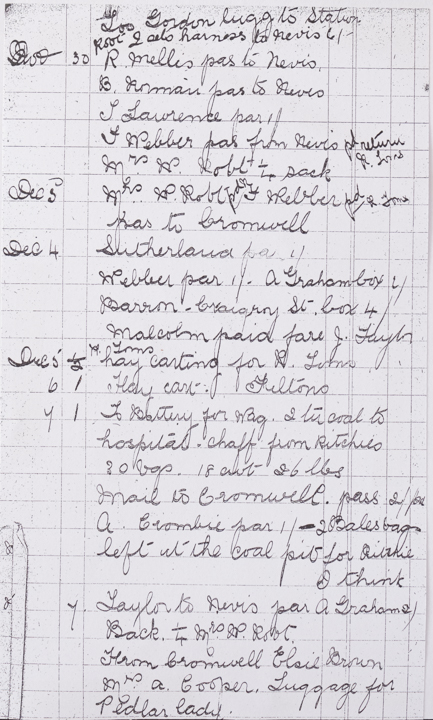 Geo Gordon lugg to Station
Robt 2 sets harness to Nevis 6/-
30 R. Mellis pas to Nevis.
B. Romain pas to Nevis
T Lawrence par 1/
T Webber pas from Nevis pd return
Mrs W. Robt ½ sack
Dec 3 Mrs W. Robt pd T Webber pd
pas to Cromwell
Dec 4 Sutherland pa 1/
Webber par 1/- A Graham box 2/
Barron - Craigroy St. box 4/
Malcolm paid fare J. Taylor
Dec 5 ½ hay carting for
6 1 Hay cart. Feltons
7 1 To Battery for Wag. 2 to coal to
hospital - chaff from Ritchies
30 bgs. 18 cwt 26 lbs
Mail to Cromwell. pass 2/
A. Crombie par 1/ - 2 Bales bags
left at the coal pit for Ritchie
I think
7. Taylor to Nevis par A Graham 2/
Back. ½ Mrs W. Robt.
From Cromwell Elsie Brown
Mrs A. Cooper. Luggage for
Pedlar lady.